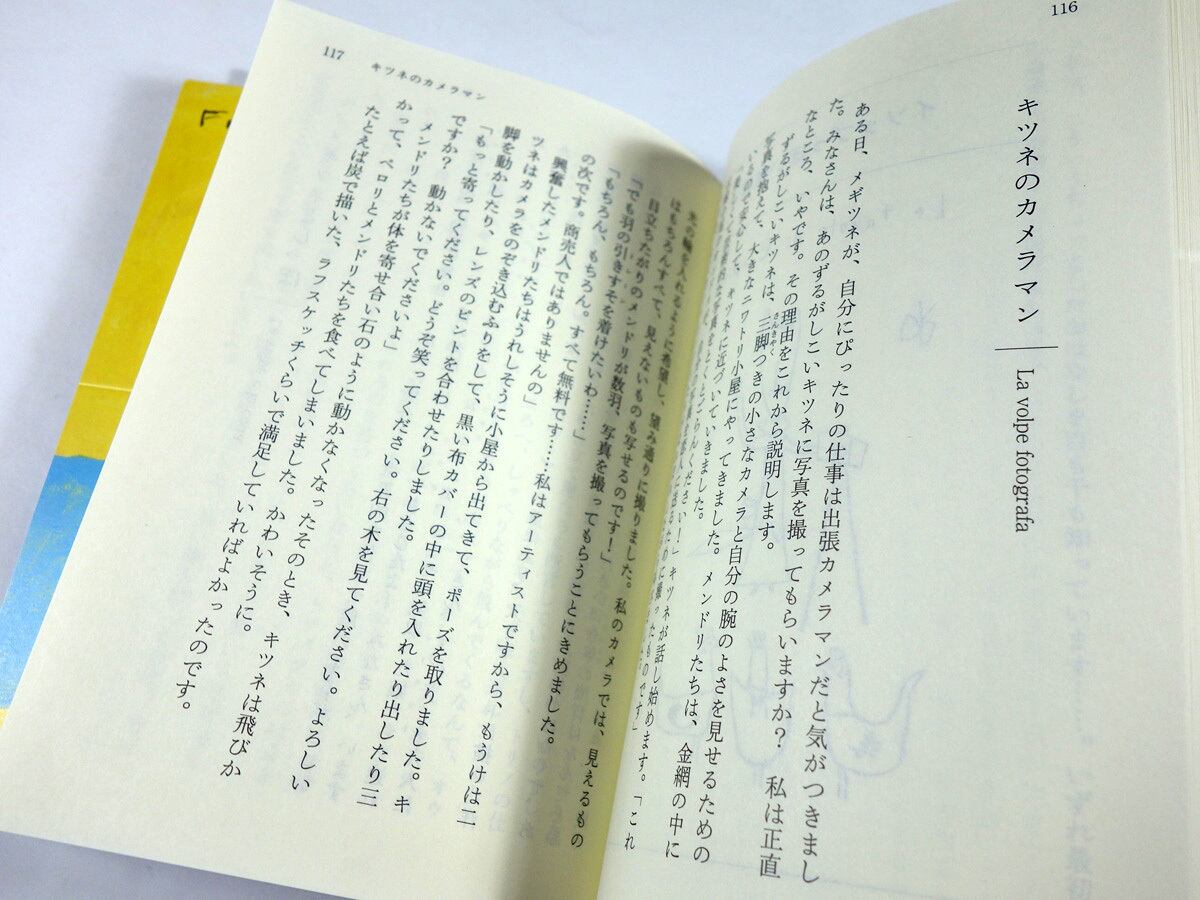 116
キツネのカメラマン
La volpe fotografa
ある日、メギツネが、自分にぴったりの仕事は出張カメラマンだと気がつきまし
た。みなさんは、あのずるがしこいキツネに写真を撮ってもらいますか？　私は正直
なところ、いやです。その理由をこれから説明します。
ずるがしこいキツネは、三脚つきの小さなカメラと自分の腕のよさを見せるための
さんきやく
写真を抱えて、大きなニワトリ小屋にやってきました。メンドリたちは、金網の中に
いるので安心して、キツネに近づいていきました。
ください！」キツネが話し始めます。「これ
117
キツネのカメラマン
光の輪を入れるように希望し、望み通りに撮りました。私のカメラでは、見えるもの
はもちろんすべて、見えないものも写せるのです！」
目立ちたがりのメンドリが数羽、写真を撮ってもらうことにきめました。
「でも羽の引きすそを着けたいわ……」
「もちろん、もちろん。すべて無料です……私はアーティストですから、もうけは二
の次です。商売人ではありませんの」
興奮したメンドリたちはうれしそうに小屋から出てきて、ポーズを取りました。キ
ツネはカメラをのぞき込むふりをして、黒い布カバーの中に頭を入れたり出したり三
脚を動かしたり、レンズのピントを合わせたりしました。
「もっと寄ってください。どうぞ笑ってください。右の木を見てください。よろしい
ですか？　動かないでくださいよ」
メンドリたちが体を寄せ合い石のように動かなくなったそのとき、キツネは飛びか
かって、ペロリとメンドリたちを食べてしまいました。かわいそうに。
たとえば炭で描いた、ラフスケッチくらいで満足していればよかったのです。